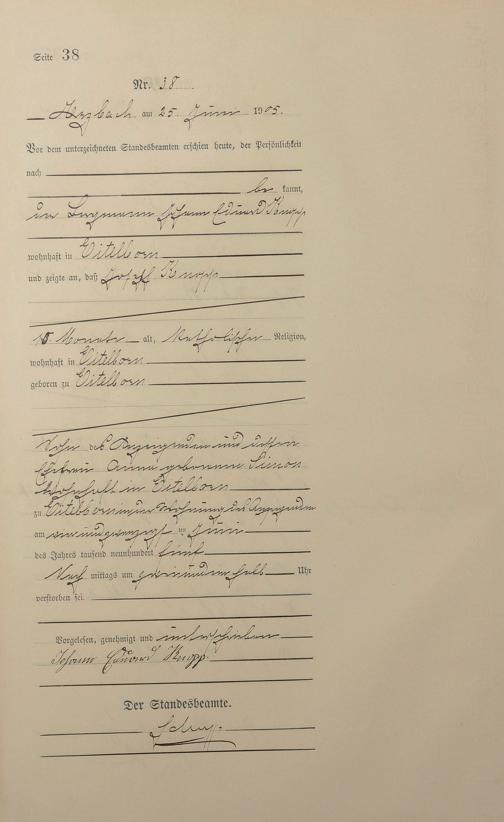 Seite 38
Nr. 38
Arzbach am 25 Juni 1905.
Vor dem unterzeichneten Standesbeamten erschien heute, der Persönlichkeit
nach
be kannt,
der Bergmann Johann Eduard Knopp
wohnhaft in Eitelborn
und zeigte an, daß Joseph Knopp
10 Monate alt, Katholischer Religion,
wohnhaft in Eitelborn
geboren zu Eitelborn
Sohn des Anzeigenden und dessen
Ehefrau Anna geborenen Simon
wohnhaft in Eitelborn
zu Eitelborn in der Wohnung des Anzeigenden
am vierundzwanzigsten Juni
des Jahres tausend neunhundert fünf
Nach mittags um halb Uhr
verstorben sei.
Vorgelesen, genehmigt und unterschrieben
Johann Eduard Knopp
Der Standesbeamte.